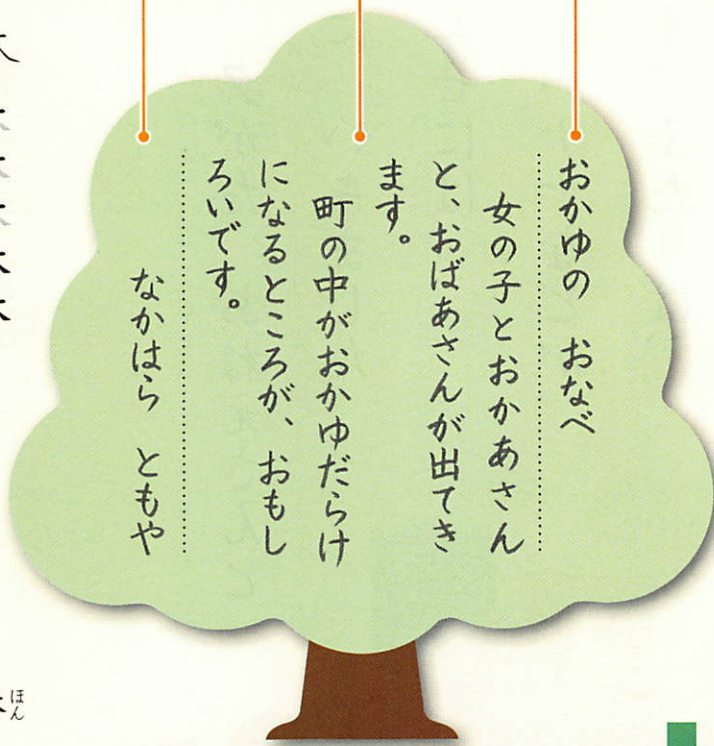 おかゆの　おなべ
　女の子とおかあさん
と、おばあさんが出てき
ます。
　町の中がおかゆだらけ
になるところが、おもし
ろいです。
なかはら　ともや
ほん